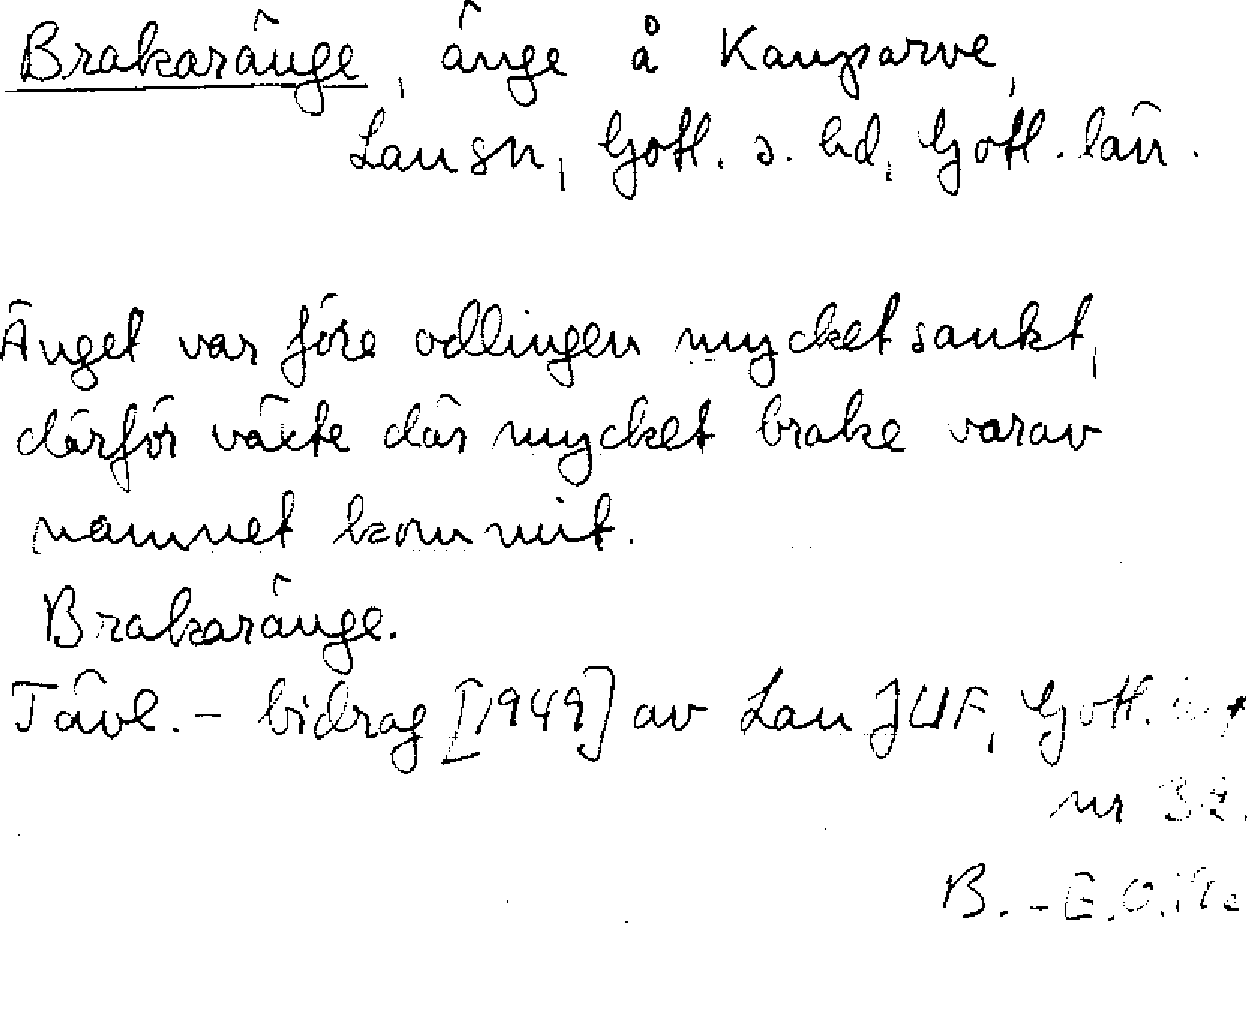 Brakaränge, änge å Kauparve,
Lau sn, Gotl. s. hd, Gotl. län.
Änget var före odlingen mycket sankt,
därför växte där mycket brake varav
namnet kommit.
Brakaränge.
Tävl.-bidrag [1949] av Lau JUF, Gotl.
nr 32.
B.-E.